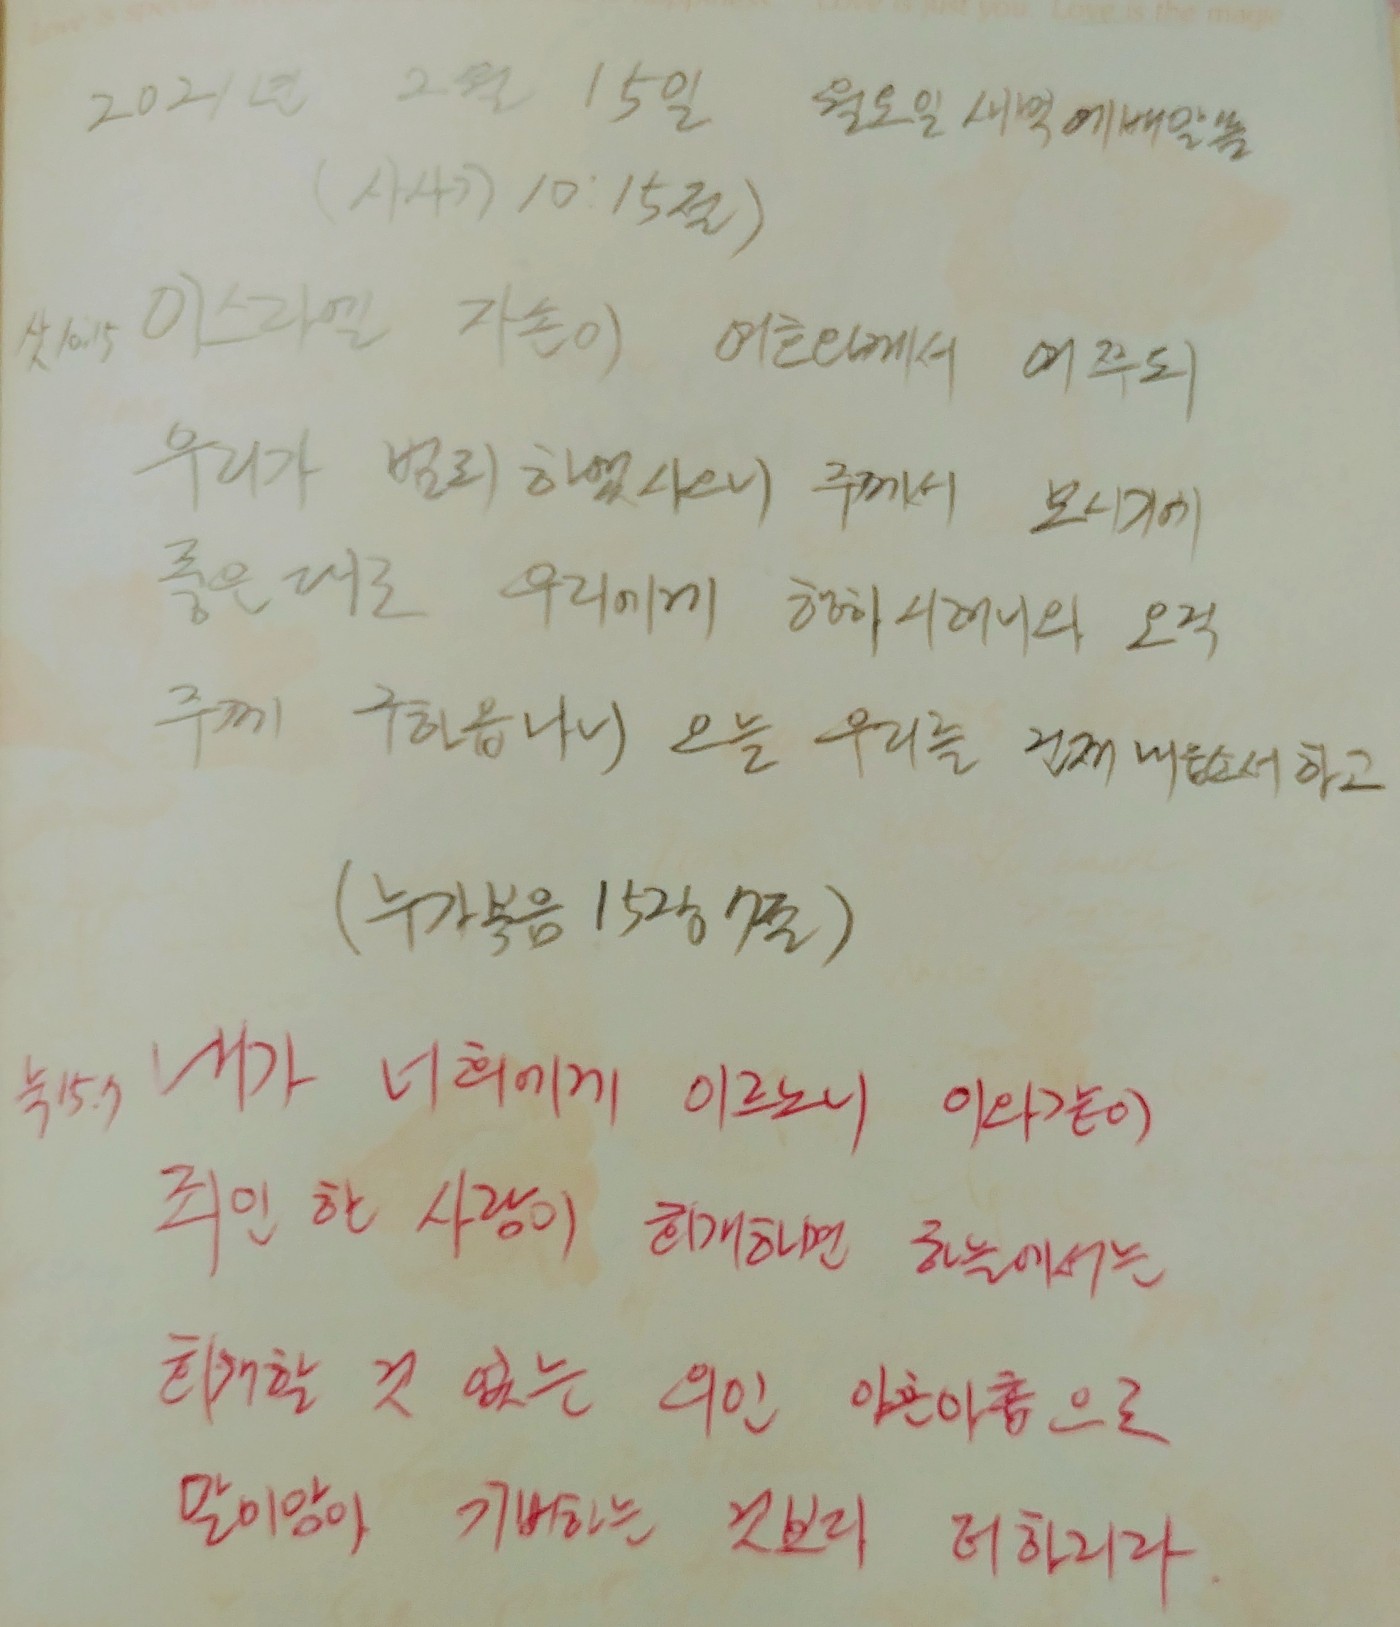 Love is just you Love is the magic
2021년 2월 15일 월요일 새벽예배말씀
(사사기 10:15절)
삿10:15 이스라엘 자손이 여호와께서 여쭈되
우리가 범죄하였사오니 주께서 보시기에
좋은대로 우리에게 행하시려니와 오직
주께 구하옵나니 오늘 우리를 건져내옵소서하고
(누가복음 15장 7절)
눅15:7 내가 너희에게 이르노니 이와같이
죄인 한 사람이 회개하면 하늘에서는
회개할 것 없는 의인 아흔아홉으로
말미암아 기뻐하는 것보다 더하리라.